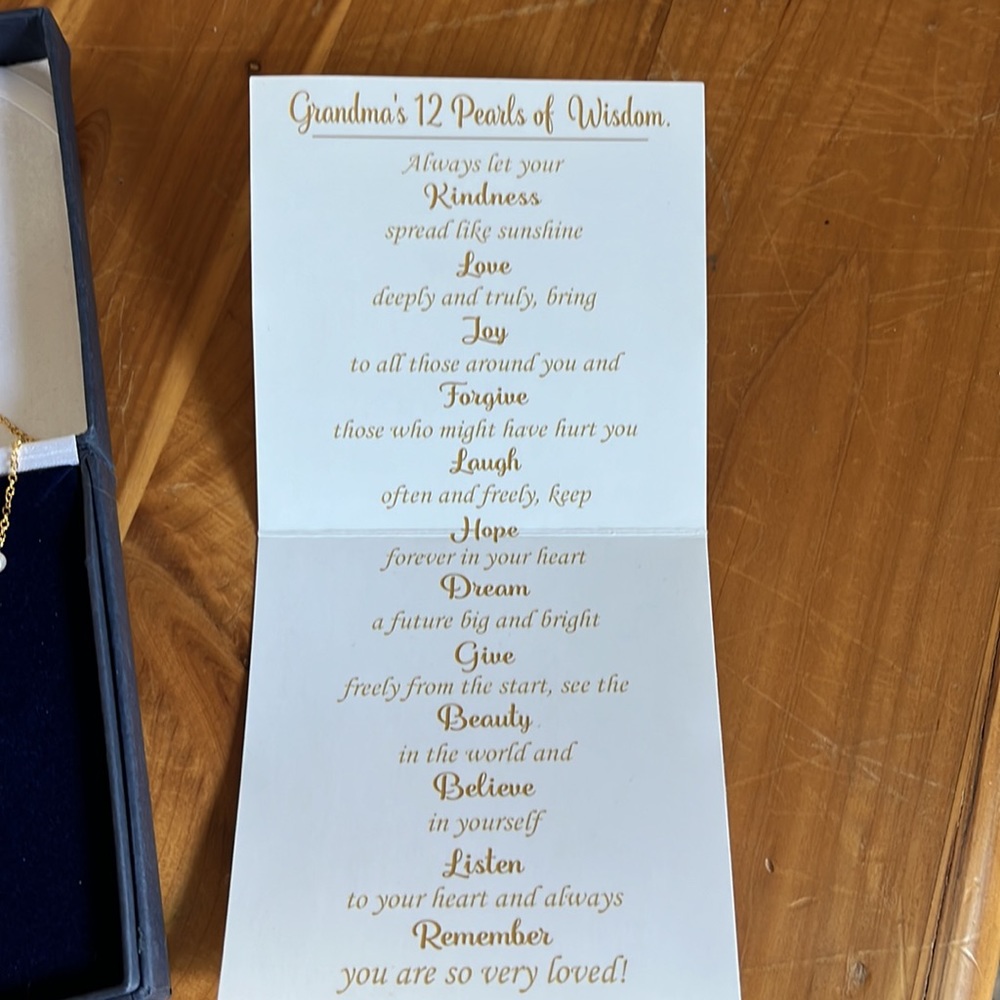 Grandma's 12 Pearls of Wisdom.
Always let your
Kindness
spread like sunshine
Love
deeply and truly, bring
Joy
to all those around you and
Forgive
those who might have hurt you
Laugh
often and freely, keep
Hope
forever in your heart
Dream
a future big and bright
Give
freely from the start, see the
Beauty
in the world and
Believe
in yourself
Listen
to your heart and always
Remember
you are so very loved!